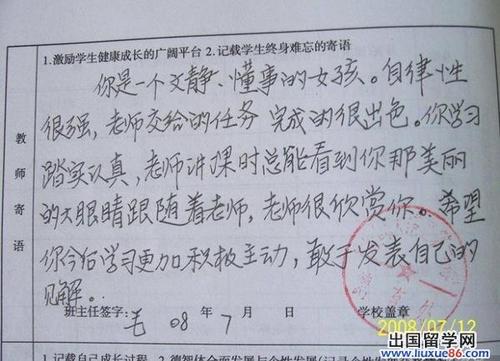 1.激励学生健康成长的广阔平台 2.记载学生终身难忘的寄语
教师寄语
你是一个文静、懂事的女孩。自律性
很强,老师交给的任务完成的很出色。你学习
踏实认真,老师讲课时总能看到你那美丽
的大眼睛跟随着老师,老师很欣赏你。希望
你今后学习更加积极主动,敢于发表自己的
见解。
班主任签字: 08年7月 日 学校盖章
2008/07/12
1.记载自己成长过程 2.德智体全面发展与个性发展
出国留学网
www.liuxue86.com